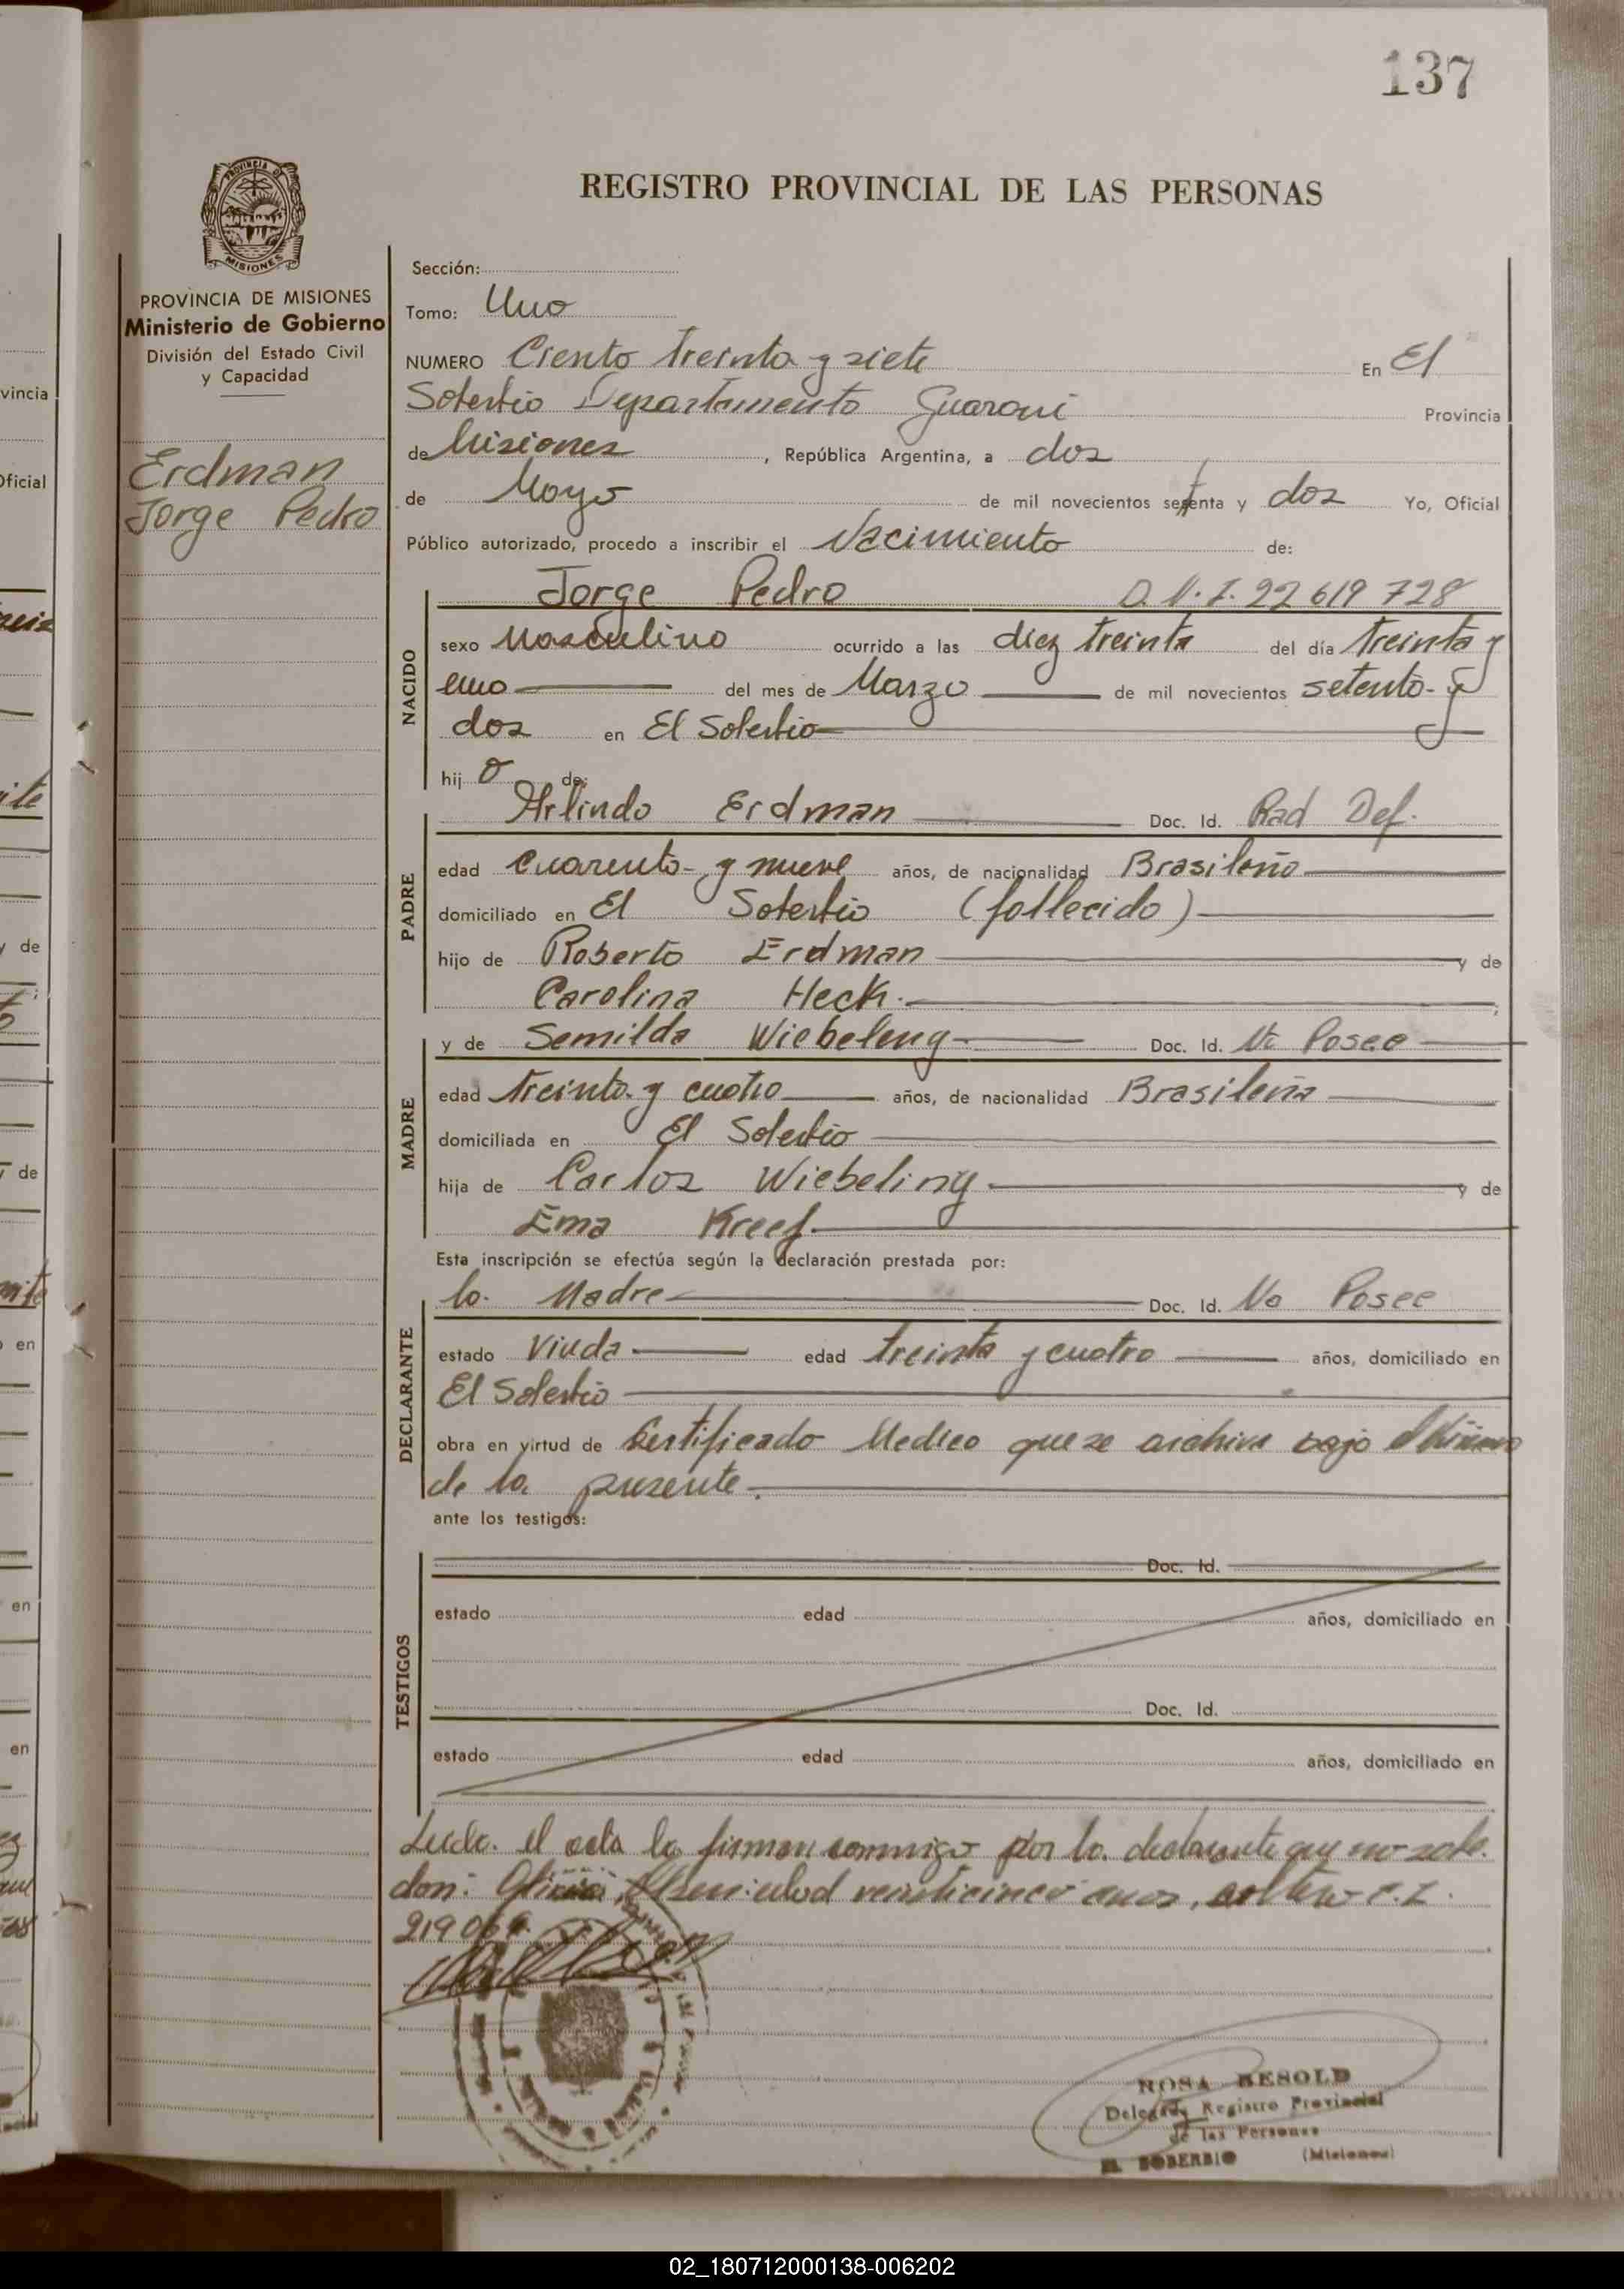 137
REGISTRO PROVINCIAL DE LAS PERSONAS
PROVINCIA DE MISIONES
PROVINCIA DE MISIONES
Ministerio de Gobierno
División del Estado Civil
y Capacidad
Erdman
Jorge Pedro
Sección:
Tomo: Uno
NUMERO Ciento treinta y siete En El
Soberbio Departamento Guarani Provincia
de Misiones, República Argentina, a dos
de Mayo de mil novecientos setenta y dos Yo, Oficial
Público autorizado, procedo a inscribir el Nacimiento de:
NACIDO
Jorge Pedro D.N.I. 22 619 728
sexo Masculino ocurrido a las diez treinta del día treinta y
uno del mes de Marzo de mil novecientos setenta y
dos en El Soberbio
hij o de:
PADRE
Arlindo Erdman Doc. Id. Rad Def.
edad cuarenta y nueve años, de nacionalidad Brasileño
domiciliado en El Soberbio (fallecido)
hijo de Roberto Erdman y de
Carolina Heck.
MADRE
y de Semilda Wiebeleng Doc. Id. No Posee
edad treinta y cuatro años, de nacionalidad Brasileña
domiciliada en El Soberbio
hija de Carlos Wiebeling y de
Ema Kreef.
Esta inscripción se efectúa según la declaración prestada por:
DECLARANTE
la Madre Doc. Id. No Posee
estado Viuda edad treinta y cuatro años, domiciliado en
El Soberbio
obra en virtud de Certificado Medico que se archiva bajo el Número
de la presente.
ante los testigos:
TESTIGOS
Doc. Id.
estado edad años, domiciliado en
Doc. Id.
estado edad años, domiciliado en
Leida el acta la firman conmigo por la declarante que no sabe
don: edad veinticinco años, soltero C.I.
ROSA BESOLD
Delegada Registro Provincial
de las Personas
EL SOBERBIO (Misiones)
vincia
Oficial
y de
de
en
en
en
02_180712000138-006202